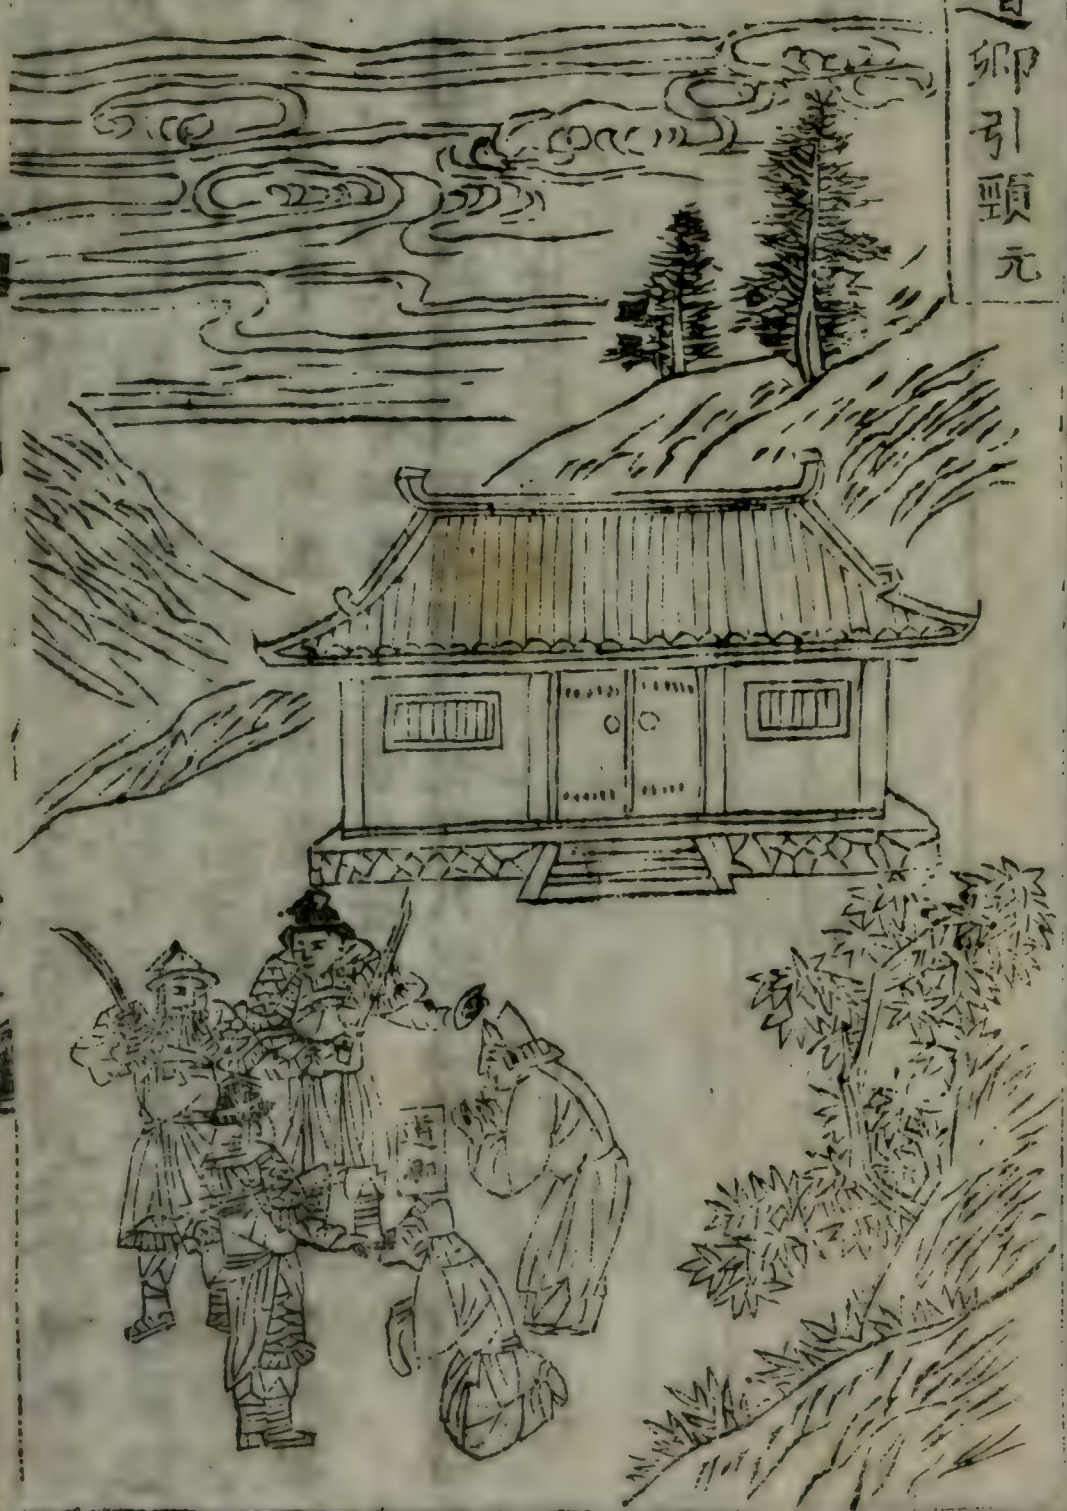 卿引頸元